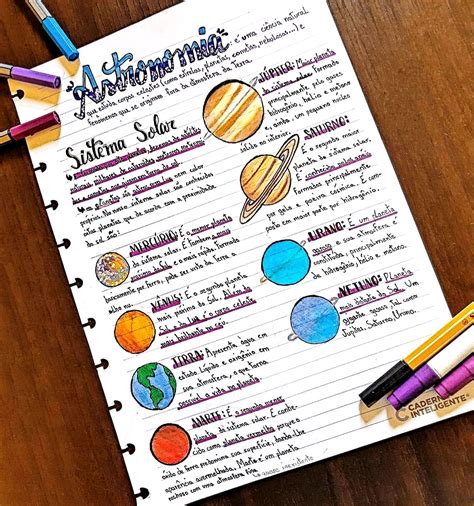 Astronomia
é uma ciência natural
que estuda corpos celestes (como estrelas, planetas, cometas, nebulosas...) e
fenômenos que se originam fora da atmosfera da Terra.
Sistema Solar
do Sol
os planetas
próprios. No nosso sistema solar são conhecidos
planetas que de acordo com a proximidade
do sol, são:
MERCÚRIO: É o menor planeta
do sistema solar. É também o mais
e o mais rápido. Formado
por ferro, pode ser visto da Terra a
VÊNUS: É o segundo planeta
mais próximo do Sol. Além do
Sol e da lua é o corpo celeste
mais brilhante no céu.
TERRA: Apresenta água em
estado líquido e oxigênio em
sua atmosfera, o que torna
possível a vida no planeta.
MARTE: É o segundo menor
planeta do sistema solar. É conhe-
cido como planeta vermelho porque o
óxido de ferro predomina sua superfície, dando-lhe
aparência avermelhada. Marte é um planeta
rochoso com uma atmosfera fina.
JÚPITER: Maior planeta
do sistema solar. Formado
principalmente, pelo gás
hidrogênio, hélio e metano
ainda, um pequeno núcleo
sólido no interior.
SATURNO:
É o segundo maior
planeta do sistema solar.
É conhecido pelos seus anéis
Formados principalmente
por gelo e poeira cósmica. É com-
posto em maior parte por hidrogênio.
URANO: É um planeta
gasoso e sua atmosfera é
constituída, principalmente
de hidrogênio, hélio e metano.
NETUNO: Planeta
mais distante do Sol. Um
gigante gasoso, tal como
Júpiter, Saturno, Urano.
CADERNO
INTELIGENTE®